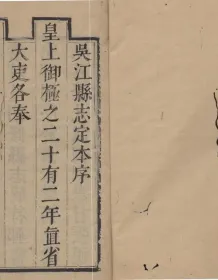 吳江縣志定本序
皇上御極之二十有二年直省
大吏各奉